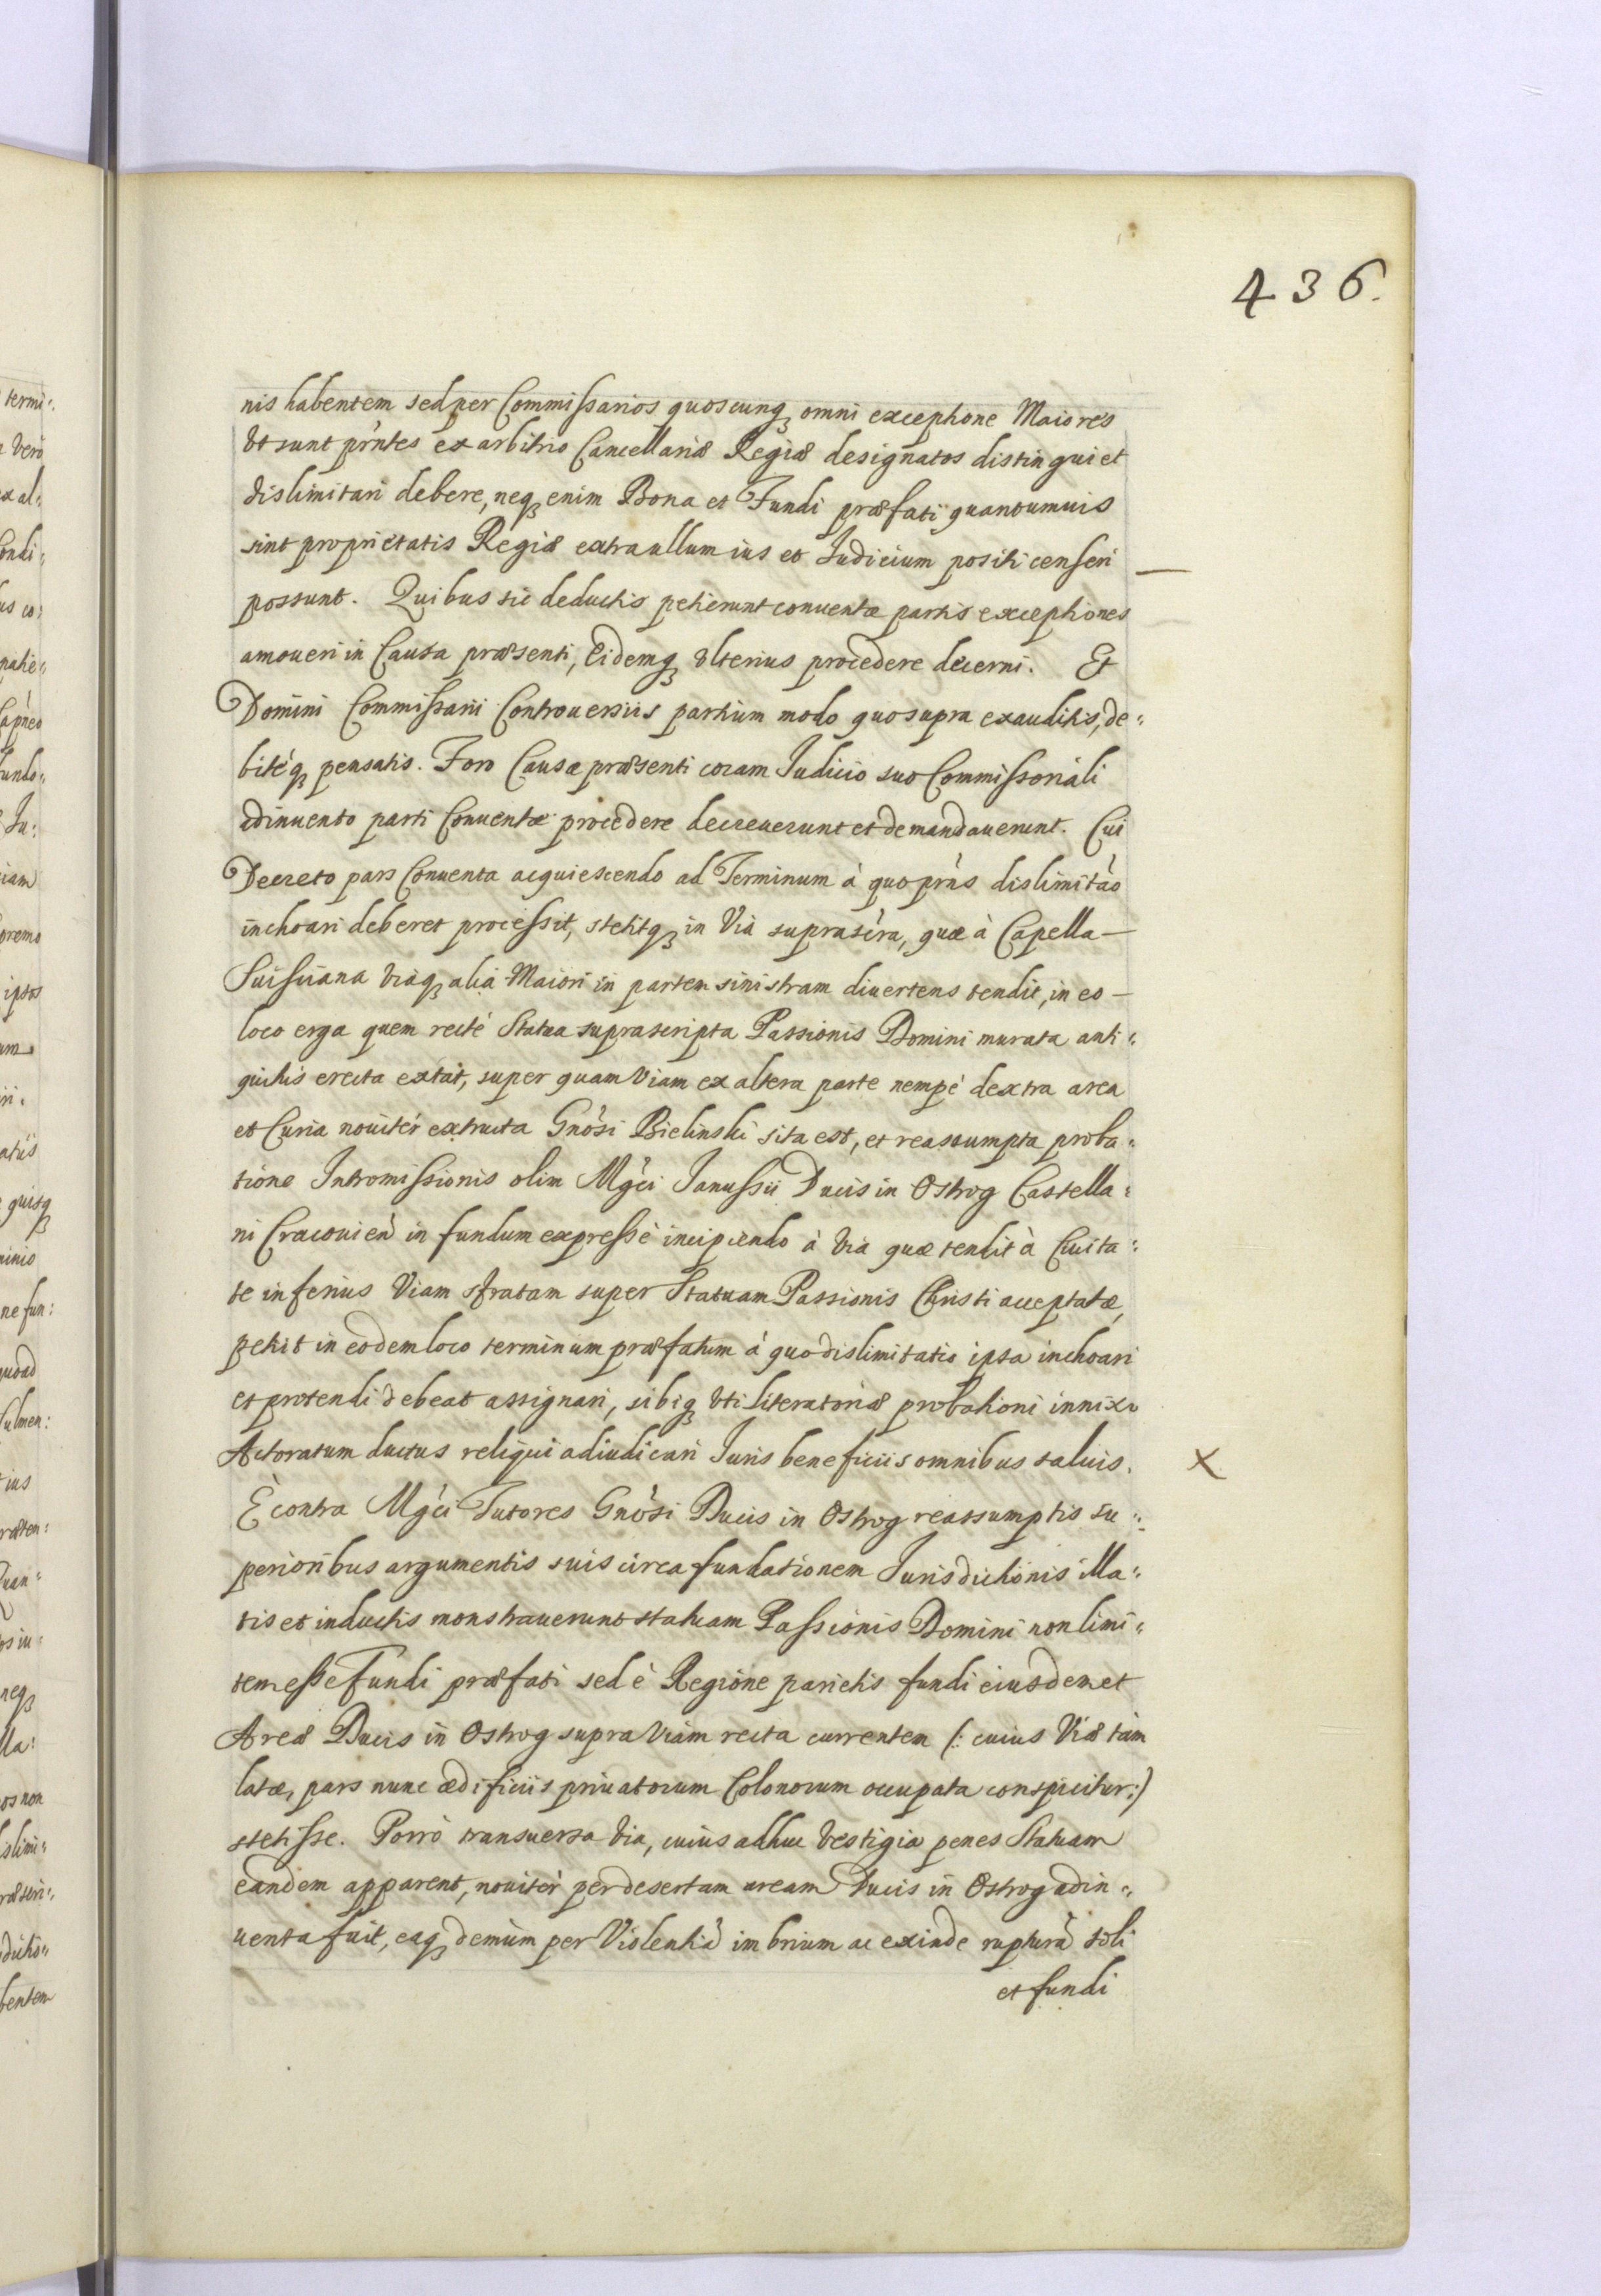 436.
nis habentem sed per Commissarios quoscunq; omni exceptione Maiores
Vt sunt pr̃ntes ex arbitrio Cancellariæ Regiæ designatos distingui et
dislimitari debere, neq; enim Bona et Fundi præfati quantumuis
sint proprietatis Regiæ extra ullum ius et Judicium positi censeri
possunt. Quibus sic deductis petierunt conuentæ partis exceptiones
amoueri in Causa præsenti, Eidemq; vlterius procedere decerni. Et
Domini Commissarii Controuersiis partium modo quo supra exauditis, de-
bitéq; pensatis. Foro Causæ præsenti coram Judicio suo Commissoriali
adinuento parti Conuentæ procedere decreuerunt et demandauerunt. Cui
Decreto pars Conuenta acquiescendo ad Terminum à quo pr̃ns dislimitão
inchoari deberet processit, stetitq; in Via suprascr̃a, quæ à Capella —
Suissiana viaq; alia Maiori in partem sinistram diuertens tendit, in eo —
loco erga quem recté Statua suprascripta Passionis Domini murata anti-
quitus erecta extat, super quam Viam ex altera parte nempé dextra area
et Curia nouitér extructa Gnõsi Bielinski sita est, et reassumpta proba-
tione Intromissionis olim Mgci Janussii Ducis in Ostrog Castella-
ni Cracouień in fundum expressé incipiendo à via quæ tendit à Ciuita-
te inferius Viam stratam super Statuam Passionis Christi acceptatæ,
petit in eodem loco terminum præfatum à quo dislimitatio ipsa inchoari
et protendi debeat assignari, sibiq; vti literatoriæ probationi innixo
Actoratum ductus reliqui adiudicari Juris beneficiis omnibus saluis. X
È contra Mgci Tutores Gnõsi Ducis in Ostrog reassumptis su-
perioribus argumentis suis circa fundationem Jurisdictionis illa-
tis et inductis monstrauerunt statuam Passionis Domini non limi-
tem esse Fundi præfati sed è Regione parietis fundi eiusdem et
Areæ Ducis in Ostrog supra viam recta currentem (: cuius Viæ tam
latæ, pars nunc ædificiis priuatorum Colonorum occupata conspicitur :)
stetisse. Porrò transuersa via, cuius adhuc vestigia penes Statuam
eandem apparent, nouitér per desertam aream Ducis in Ostrog adin-
uenta fuit, eaq; demùm per Violentiã imbrium ac exinde rupturã soli
et fundi